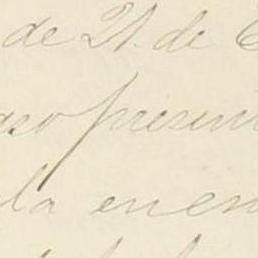 de 21. de
aso presen
la enen